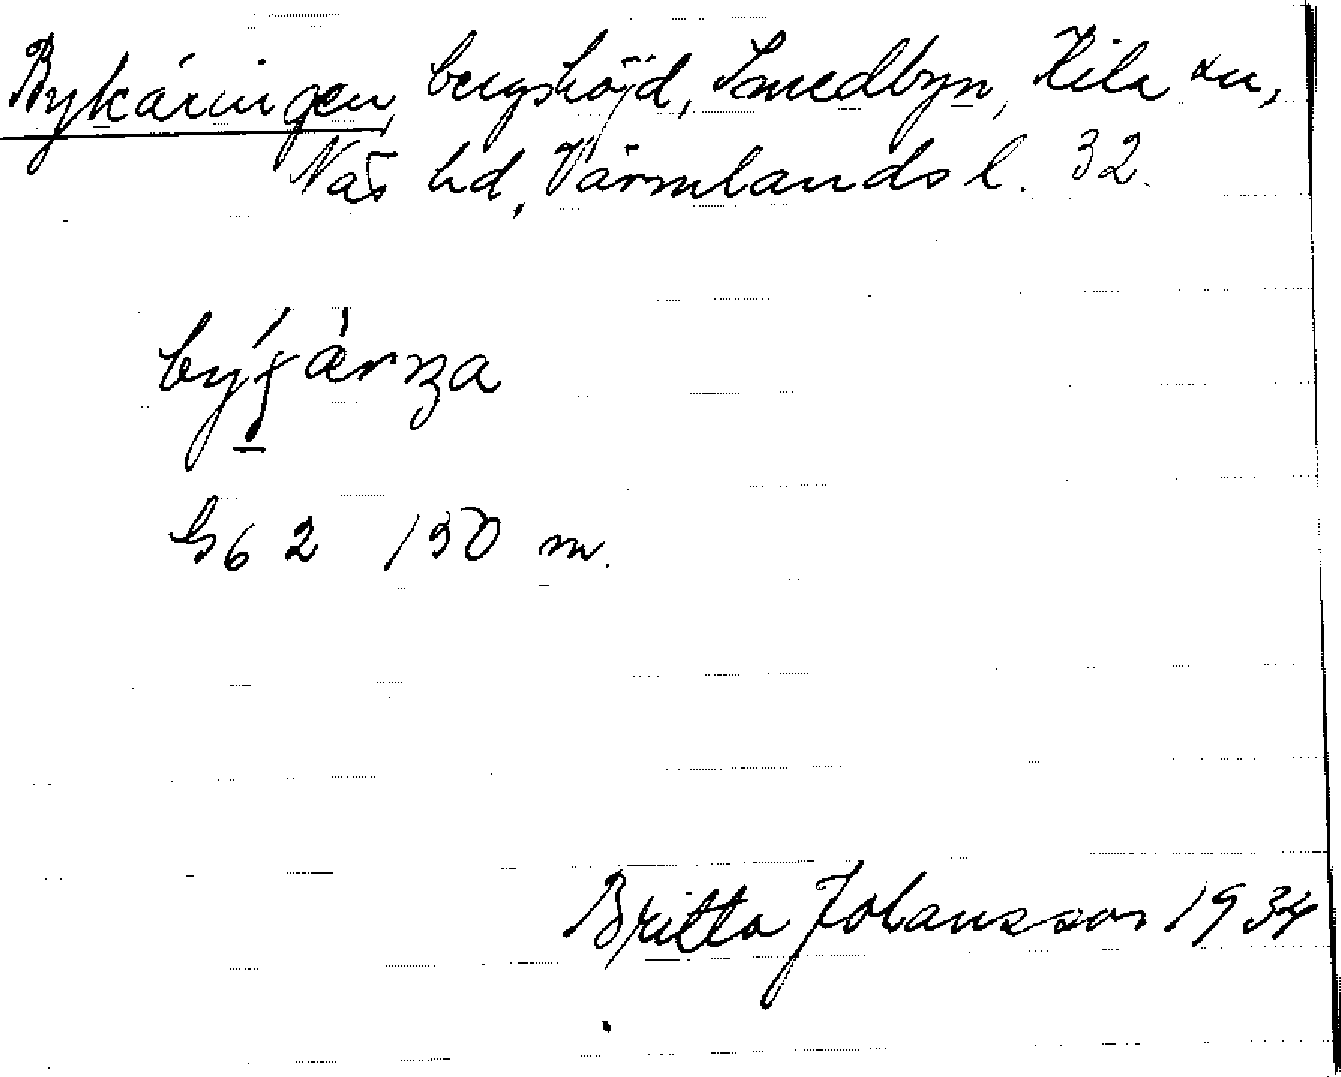 Bykäringen, bergshöjd, Smedbyn, Kila sn,
Näs hd, Värmlands l. 32.
G6 2 150 m.
Britta Johansson 1934